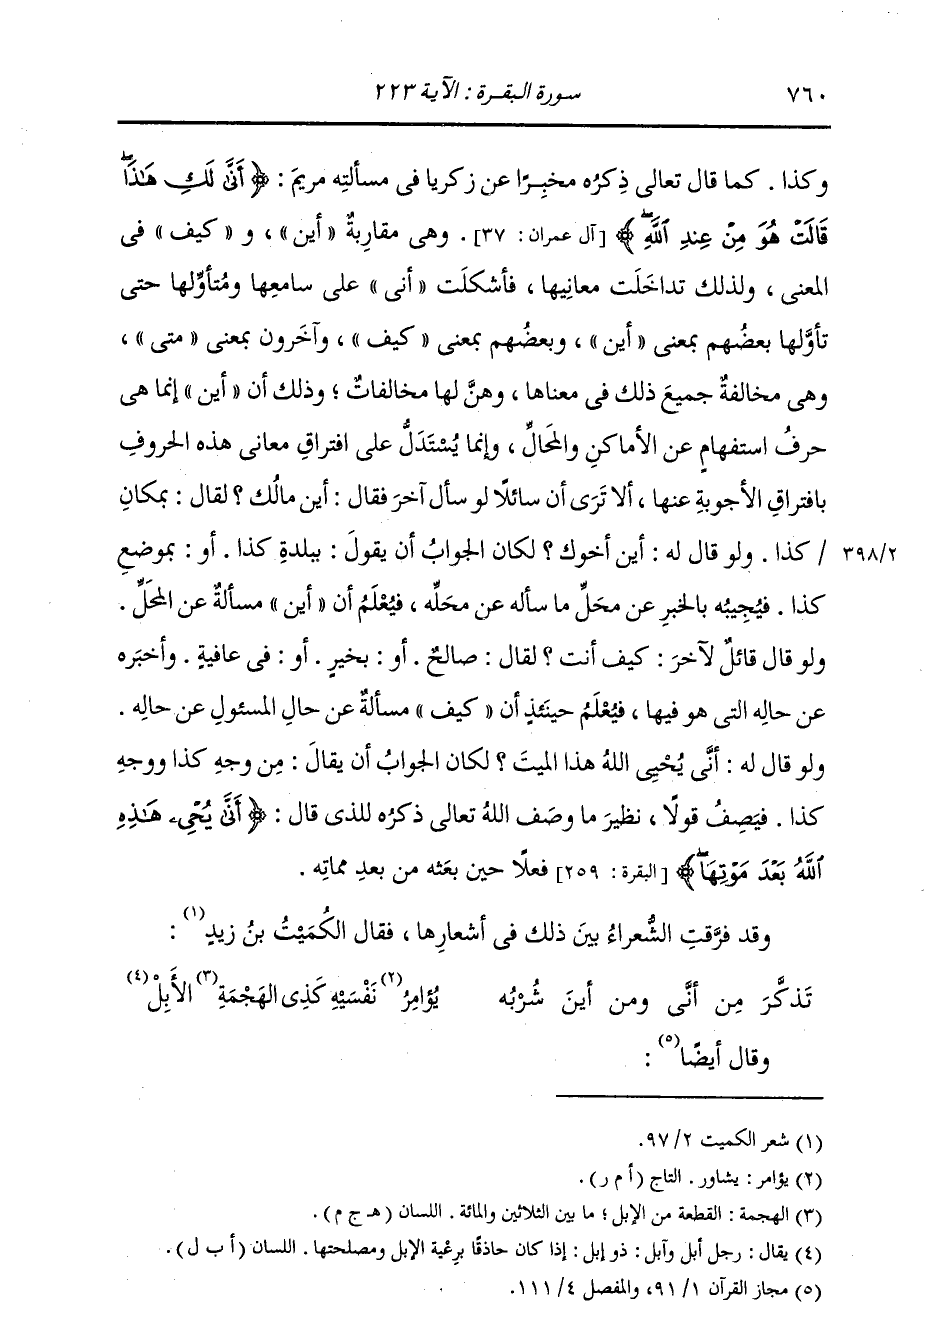 ٧٦٠ سورة البقرة : الآية ٢٢٣
وكذا . كما قال تعالى ذِكرُه مخبِرًا عن زكريا فى مسألتِه مريمَ : ﴿ أَنَّىٰ لَكِ هَٰذَاۖ
قَالَتْ هُوَ مِنْ عِندِ ٱللَّهِۖ ﴾ [آل عمران : ٣٧] . وهى مقارِبةٌ « أين » ، و « كيف » فى
المعنى ، ولذلك تداخَلَت معانِيها ، فأشكلَت « أنى » على سامعِها ومُتأوِّلها حتى
تأوَّلها بعضُهم بمعنى « أين » ، وبعضُهم بمعنى « كيف » ، وآخَرون بمعنى « متى » ،
وهى مخالفةٌ جميعَ ذلك فى معناها ، وهنَّ لها مخالفاتٌ ؛ وذلك أن « أين » إنما هى
حرفُ استفهامٍ عن الأماكنِ والمَحَالِّ ، وإنما يُسْتَدَلُّ على افتراقِ معانى هذه الحروفِ
بافتراقِ الأجوبةِ عنها ، ألا تَرَى أن سائلًا لو سأل آخرَ فقال : أين مالُك ؟ لقال : بمكانِ
٣٩٨/٢ / كذا . ولو قال له : أين أخوك ؟ لكان الجوابُ أن يقولَ : ببلدةِ كذا . أو : بموضعِ
كذا . فيُجِيبُه بالخبرِ عن محَلِّ ما سأله عن محَلِّه ، فيُعْلَمُ أن « أين » مسألةٌ عن المَحَلِّ .
ولو قال قائلٌ لآخرَ : كيف أنت ؟ لقال : صالحٌ . أو : بخيرٍ . أو : فى عافيةٍ . وأخبَره
عن حالِه التى هو فيها ، فيُعْلَمُ حينَئذٍ أن « كيف » مسألةٌ عن حالِ المسئولِ عن حالِه .
ولو قال له : أنَّى يُحْيِى اللهُ هذا الميتَ ؟ لكان الجوابُ أن يقالَ : مِن وجهِ كذا ووجهِ
كذا . فيَصِفُ قولًا ، نظيرَ ما وصَف اللهُ تعالى ذكرُه للذى قال : ﴿ أَنَّىٰ يُحْىِۦ هَٰذِهِ
ٱللَّهُ بَعْدَ مَوْتِهَاۖ ﴾ [البقرة : ٢٥٩] فعلًا حين بعَثه من بعدِ مماتِه .
وقد فرَّقتِ الشُّعراءُ بينَ ذلك فى أشعارِها ، فقال الكُمَيْتُ بنُ زيدٍ(١) :
تَذكَّرَ مِن أنَّى ومن أينَ شُرْبُه يُؤامِرُ(٢) نَفْسَيْهِ كَذِى الهَجْمَةِ(٣) الأَبِلْ(٤)
وقال أيضًا(٥) :
(١) شعر الكميت ٢/ ٩٧.
(٢) يؤامر : يشاور . التاج (أ م ر) .
(٣) الهجمة : القطعة من الإبل ؛ ما بين الثلاثين والمائة . اللسان (هـ ج م) .
(٤) يقال : رجل أبل وآبل : ذو إبل : إذا كان حاذقًا برِعْية الإبل ومصلحتها . اللسان (أ ب ل) .
(٥) مجاز القرآن ١/ ٩١، والمفصل ٤/ ١١١.